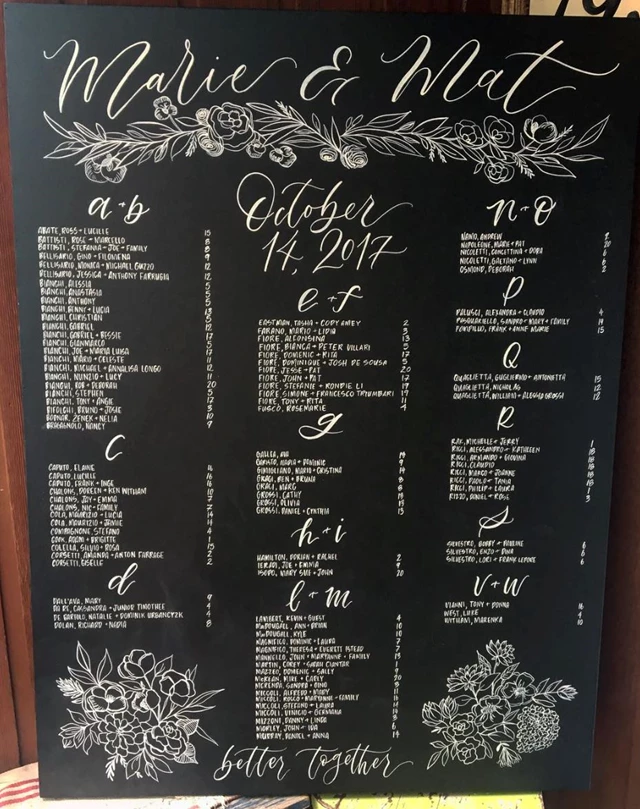 Marie & Mat
October
14, 2017
a+b
ABATE, ROSS + LUCILLE 15
BATTISTI, ROSE + MARCELLO 8
BATTISTI, STEFANIA + JOE + FAMILY 8
BELLISARIO, GINO + FILOMENA 9
BELLISARIO, MONICA + MICHAEL GUZZO 12
BELLISARIO, JESSICA + ANTHONY FARRUGIA 12
BIANCHI, ALESSIA 5
BIANCHI, ANASTASIA 5
BIANCHI, ANTHONY 5
BIANCHI, BENNY + LUCIA 13
BIANCHI, CHRISTIAN 5
BIANCHI, GABRIEL 12
BIANCHI, GABRIEL + BESSIE 17
BIANCHI, GIANMARCO 5
BIANCHI, JOE + MARIA LUISA 17
BIANCHI, MARIO + CELESTE
BIANCHI, MICHAEL + ANNALISA LONGO 12
BIANCHI, NUNZIO + LUCY 11
BIANCHI, ROB + DEBORAH 20
BIANCHI, STEPHEN 5
BIANCHI, TONY + ANGIE 17
BIFOLCHI, BRUNO + JOSIE 3
BODNAR, ZENEK + NELIA 10
BRAGAGNOLO, NANCY 9
c
CAPUTO, ELAINE 16
CAPUTO, LUCILLE 16
CAPUTO, FRANK + INGE 16
CHALONS, DOREEN + KEN WITHAM 10
CHALONS, JAY + EMMA 7
CHALONS, NIC + FAMILY 7
COLA, MAURIZIO + LUCIA 14
COLA, MAURIZIO + JAMIE 14
COMPAGNONE, STEFANO 4
COOK, ADAM + BRIGITTE 1
COLELLA, SILVIO + ROSA 15
CORSETTI, AMANDA + ANTON FARRAGE 2
CORSETTI, GISELLE 2
d
DALL'AVA, MARY 9
DA RE, CASSANDRA + JUNIOR TIMOTHEE 4
DE BARTOLO, NATALIE + DOMINIK URBANCYZK 4
DOLAN, RICHARD + NADIA 8
e+f
EASTMAN, TASHA + CODY ANTEY 2
FARANO, MARIO + LIDIA 3
FIORE, ALFONSINA 13
FIORE, BIANCA + PETER VILLARI 5
FIORE, DOMENIC + RITA 17
FIORE, DOMINIQUE + JOSH DE SOUSA 5
FIORE, JESSE + PAT 20
FIORE, JOHN + PAT 17
FIORE, STEFANIE + RONDIE LI 17
FIORE, SIMONE + FRANCESCO TAYUMBARI 19
FIORE, TONY + RITA 11
FUSCO, ROSEMARIE 4
g
GALEA, AVA 19
GARISTO, MARIA + DOMINIC 9
GIROLAMO, MARIO + CRISTINA 14
GRACI, BEN + BRUNA 8
GRACI, MARC 8
GROSSI, CATHY 13
GROSSI, OLIVIA 13
GROSSI, DANIEL + CYNTHIA 13
h+i
HAMILTON, DORIAN + RACHEL 2
IERADI, JOE + EMMA 9
ISOPO, MARY SUE + JOHN 20
l+m
LAMBERT, KEVIN + GUEST 4
MACDOUGALL, ANN + BRIAN 10
MACDOUGALL, KYLE 10
MAGNIFICO, DOMINIC + LAURA 7
MAGNIFICO, THERESA + EVERETT ISTEAD 7
MANNELLO, JOHN + MARYANNE + FAMILY 13
MARTIN, COREY + SARAH CLUNTAR 1
MAZZA, DOMENIC + SALLY 7
MCKEAN, MIKE + CAREY 20
MCKENNA, SANDRA + GINO 8
MICCOLI, ALFREDO + MARY 11
MICCOLI, ROCCO + MARYANNE + FAMILY 11
MICCOLI, STEFANO + LAURA 14
MICCOLI, VINICIO + GERMANA 14
MIZZONI, DANNY + LINDA 8
MORLEY, JOHN + IDA 6
MURRAY, DANIEL + ANNA 14
n+o
NANO, ANDREW 9
NAPOLEONE, MARIE + PAT 20
NICOLETTI, CONCETTINA + DORA 6
NICOLETTI, GAETANO + LYNN 6
OSMOND, DEBORAH 2
p
PALUSCI, ALEXANDRA + CLAUDIO 4
PASQUARIELLO, SANDRO + MARY + FAMILY 14
POMPILIO, FRANK + ANNE MARIE 15
Q
QUAGLIETTA, GUGLIERMO + ANTONETTA 15
QUAGLIETTA, NICHOLAS 12
QUAGLIETTA, WILLIAM + ALESSIO GROSSI 12
R
RAK, MICHELLE + JERRY 1
RICCI, ALESSANDRO + KATHLEEN 18
RICCI, ARMANDO + GIOVINA 18
RICCI, CLAUDIO 18
RICCI, MARCO + JOANNE 18
RICCI, PAOLO + TANIA 18
RICCI, PHILIP + LAURA 1
RIZZO, DANIEL + ROSE 3
S
SILVESTRO, BOBBY + PAULINE 6
SILVESTRO, ENZO + DINA 6
SILVESTRO, LORI + FRANK LEPORE 6
v+w
VIANNI, TONY + DONNA 16
WEST, LUKE 4
WYTHAM, MARENKA 10
better together